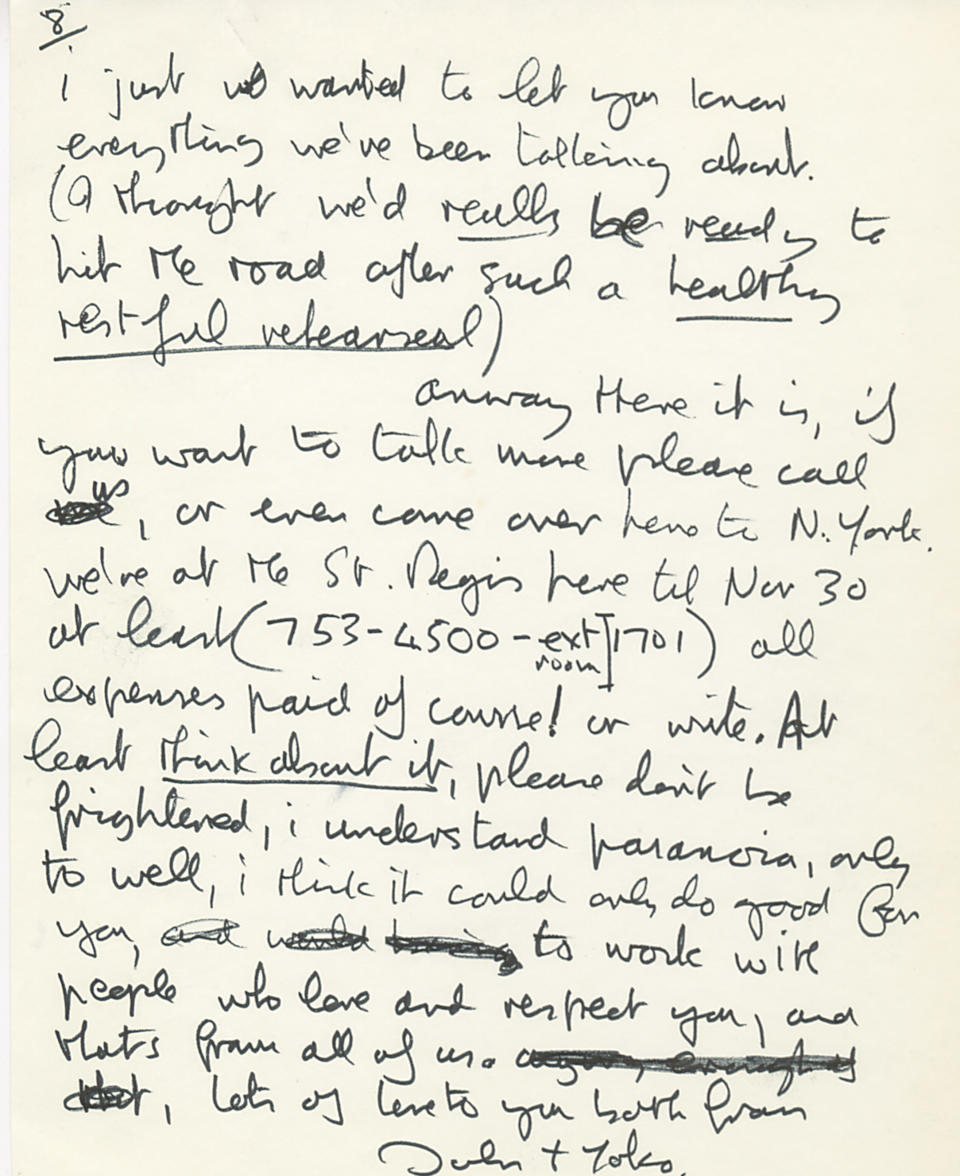 8
i just wanted to let you know
everything we've been talking about.
(I thought we'd really be ready to
hit the road after such a healthy
restful rehearseal)
anway there it is, if
you want to talk more please call
us, or even come over here to N. York.
we're at the St. Regis here til Nov 30
at least (753-4500-ext room] 1701) all
expenses paid of course! or write. At
least think about it, please don't be
frightened, i understand paranoia, only
to well, i think it could only do good for
you, to work with
people who love and respect you, and
thats from all of us.
, lots of love to you both from
John + Yoko.